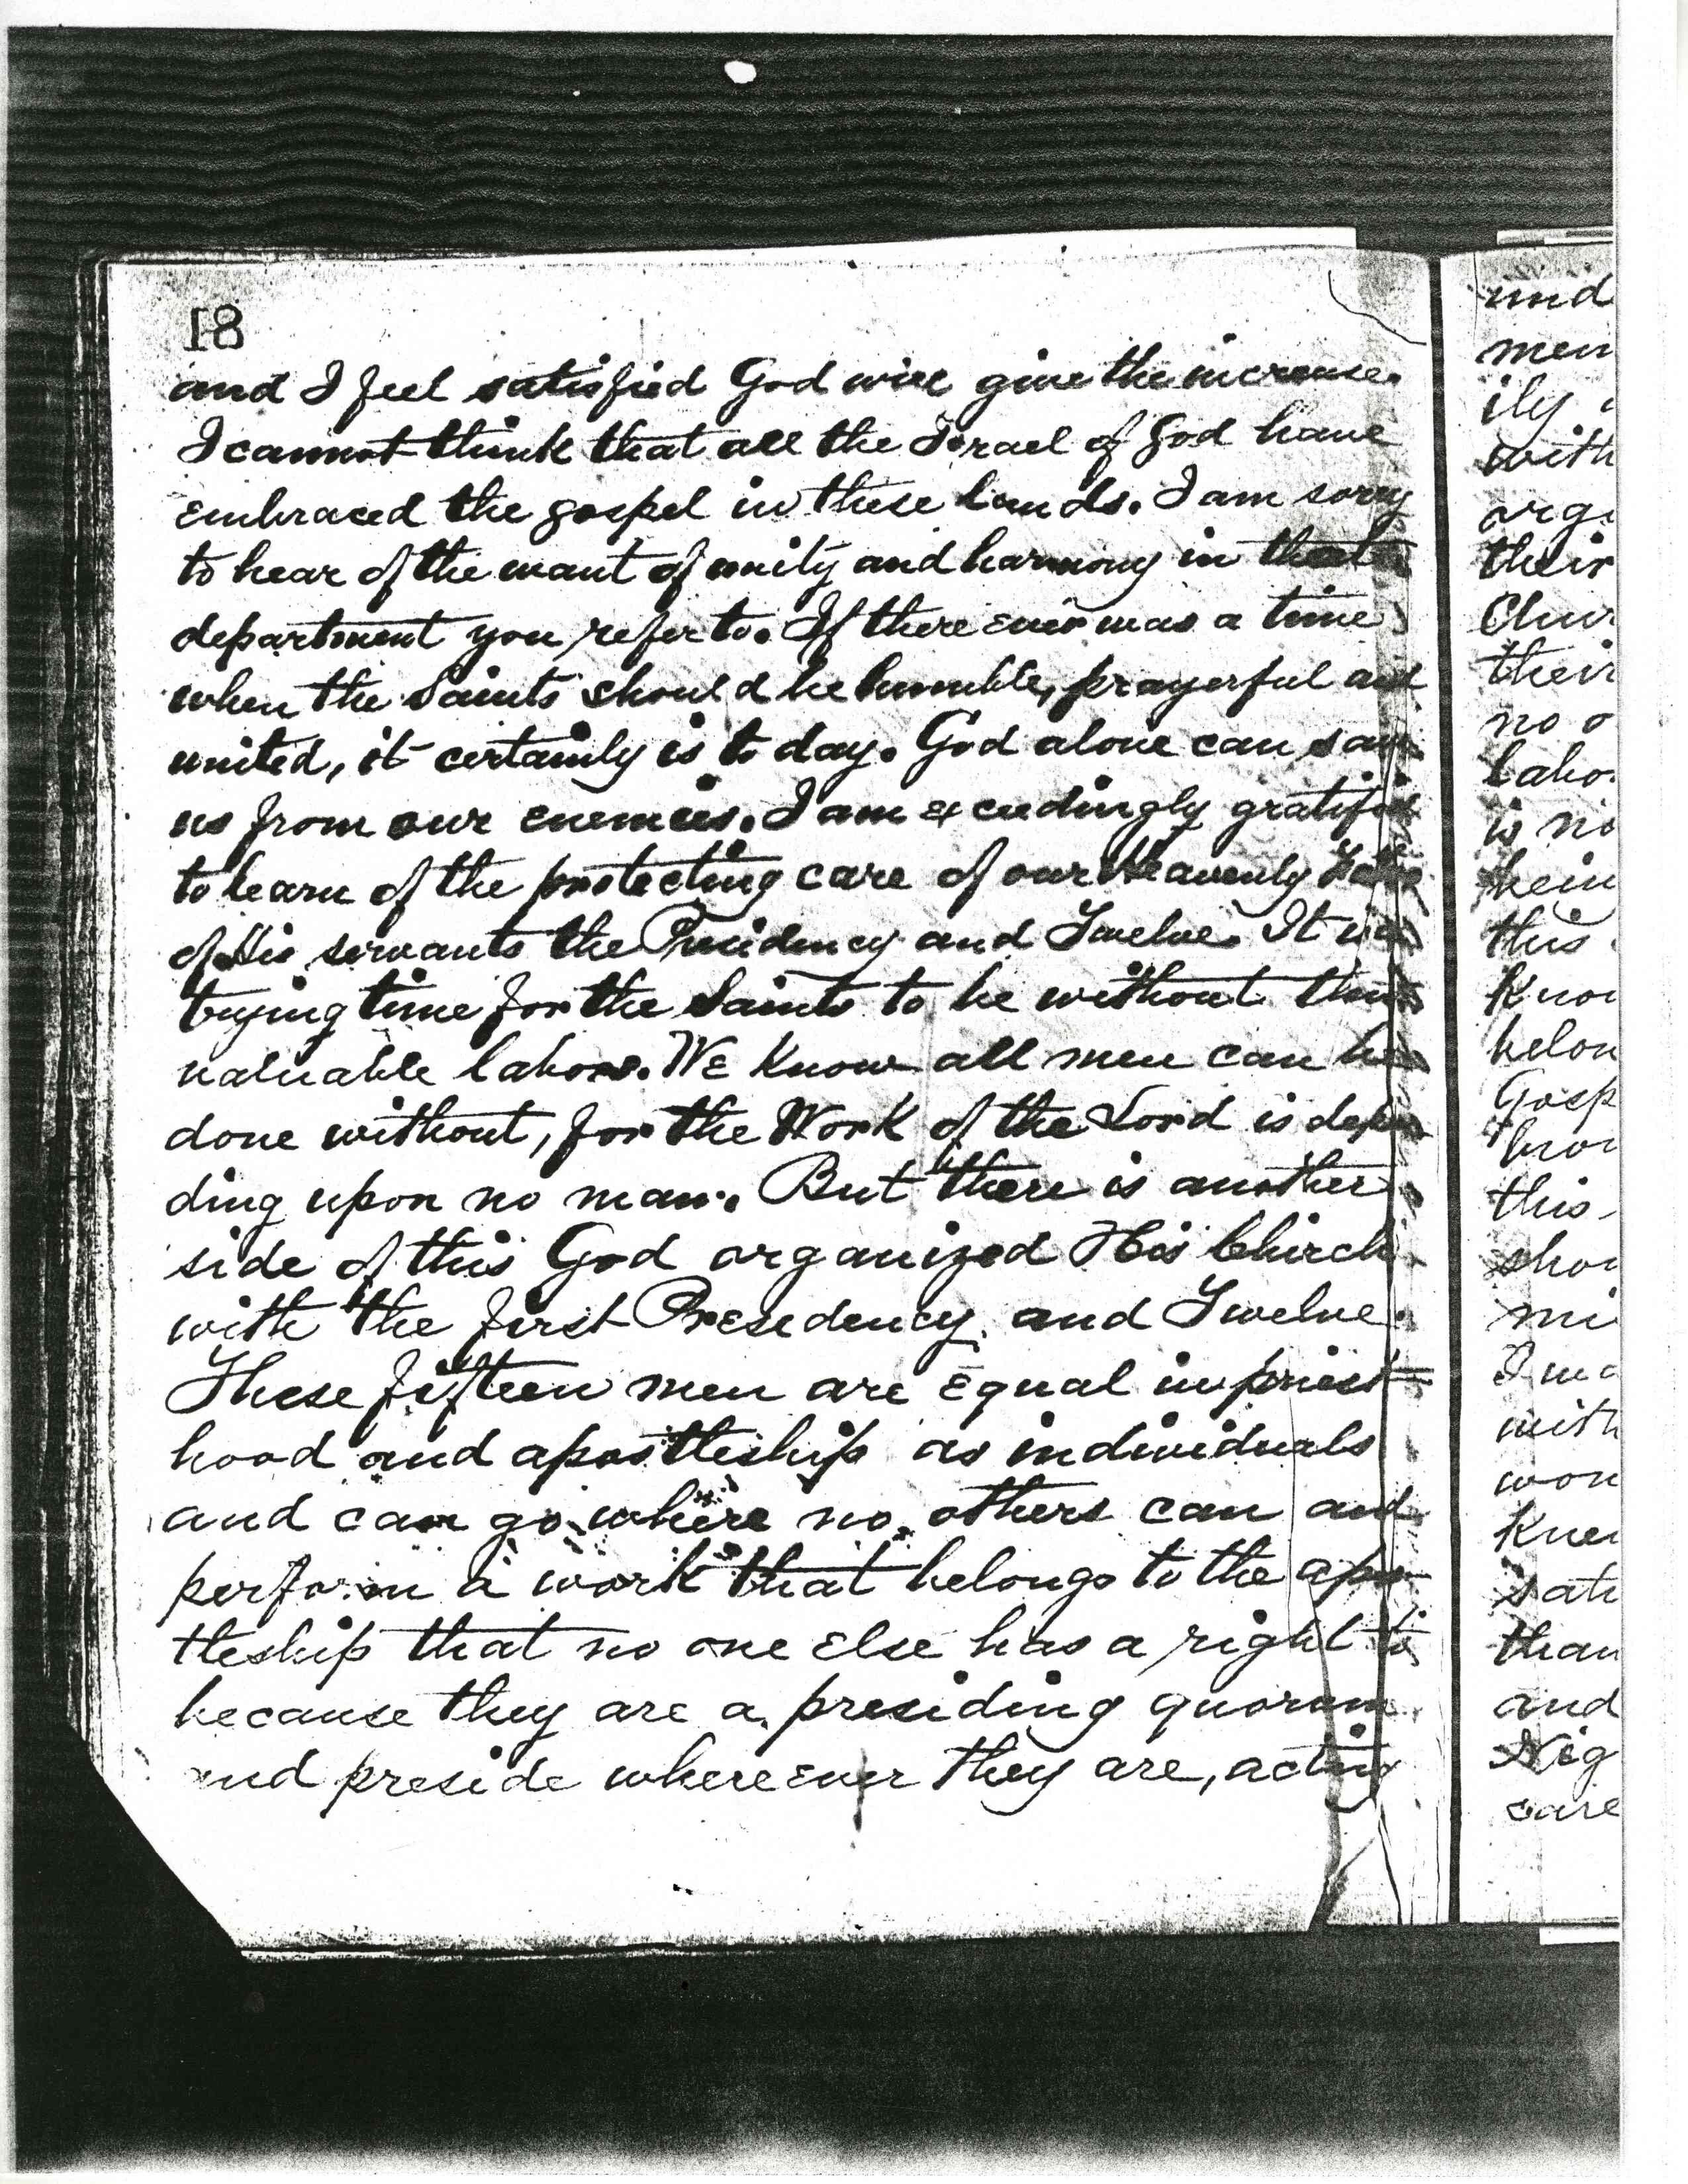 18
and I feel satisfied God will give the increase.
I cannot think that all the Israel of God have
embraced the gospel in these lands. I am sorry
to hear of the want of unity and harmony in that
department you refer to. If there ever was a time
when the Saints should be humble, prayerful and
united, it certainly is to day. God alone can save
us from our enemies. I am exceedingly gratified
to learn of the protecting care of our Heavenly Father
of His servants the Presidency and Twelve. It is a
trying time for the Saints to be without their
valuable labors. We know all men can be
done without, for the Work of the Lord is depen
ding upon no man. But there is another
side of this God organized His Chirch
with the first Presedency and Twelve.
These fifteen men are equal in priest
hood and apostleship as individuals
and can go where no others can and
perform a work that belongs to the apos
tleship that no one else has a right to
because they are a presiding quorum
and preside where ever they are, acting
und
men
ily
with
orga
their
Chur
their
no o
labo
is no
bein
this
Know
belon
Gosp
brou
this
shou
mi
I ma
with
won
Knew
sati
than
and
Nig
care